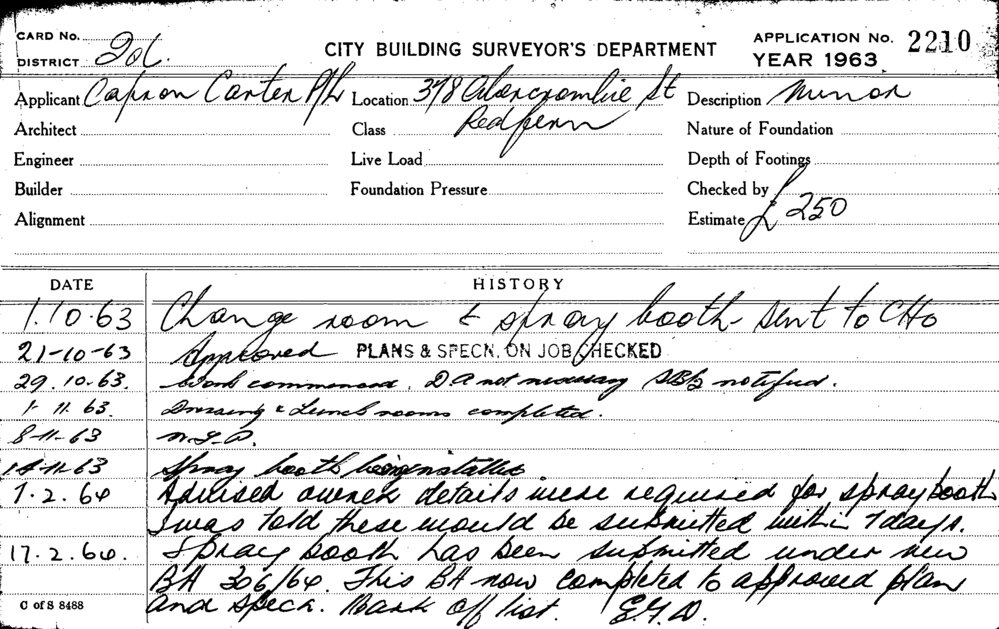 CARD No.
DISTRICT
CITY BUILDING SURVEYOR'S DEPARTMENT
APPLICATION No. 2210
YEAR 1963
Applicant Capron Carter P/L Location 378 Abercrombie St Description Minor
Architect Class Redfern Nature of Foundation
Engineer Live Load Depth of Footings
Builder Foundation Pressure Checked by
Alignment Estimate £250
DATE HISTORY
1.10.63 Change room & spray booth - sent to CHO
21-10-63 Approved PLANS & SPECN. ON JOB CHECKED
29.10.63. Work commenced. DA not necessary notified.
1. 11. 63. Dressing & Lunch rooms completed.
8-11-63
14-11-63 Spray booth being installed
7.2.64 Advised owner details were required for spray booth
I was told these would be submitted within 7 days.
17.2.64. Spray booth has been submitted under new
BA 306/64. This BA now completed to approved plan
and specn. Mark off list. E.G.D.
C of S 8488